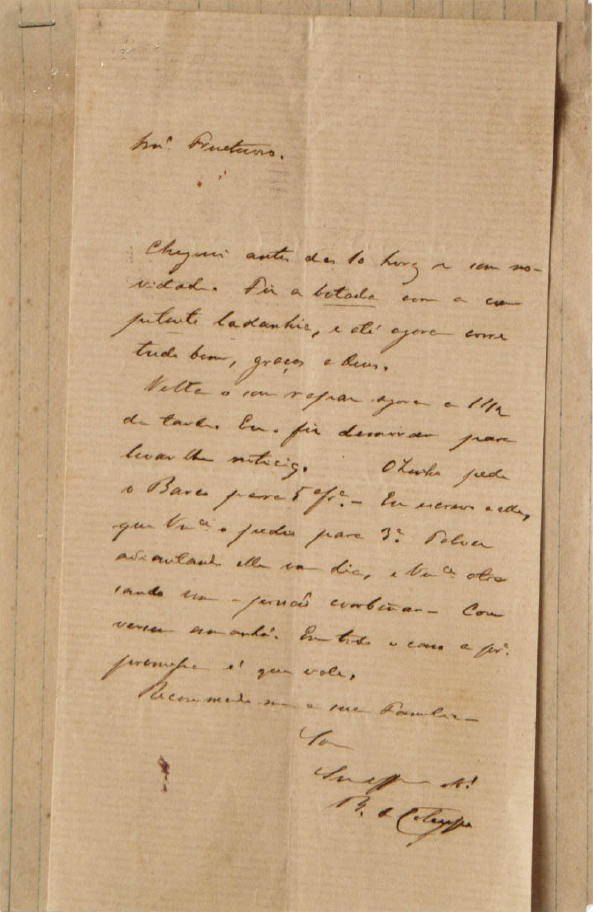 Snr. Fructuoso.
Cheguei antes das 10 horas e sem no-
vidade. Fiz a botada com a com
petente ladainha, e até agora corre
tudo bem, graças a Deus.
Volta o seu rapaz agora a 1 1/2
da tarde. Eu o fiz demorar para
levar lhe noticias. O pede
o Barco para 5ª frª. - Eu escrevo a elle,
que Vmcê o pedio para 3ª.
adiantando elle um dia, e Vmcê atra
sando um - Con
versem amanhã. Em todo o caso a prª.
promessa é que vale.
Recommende me a sua Familia -
Sou
B. de Cotegipe